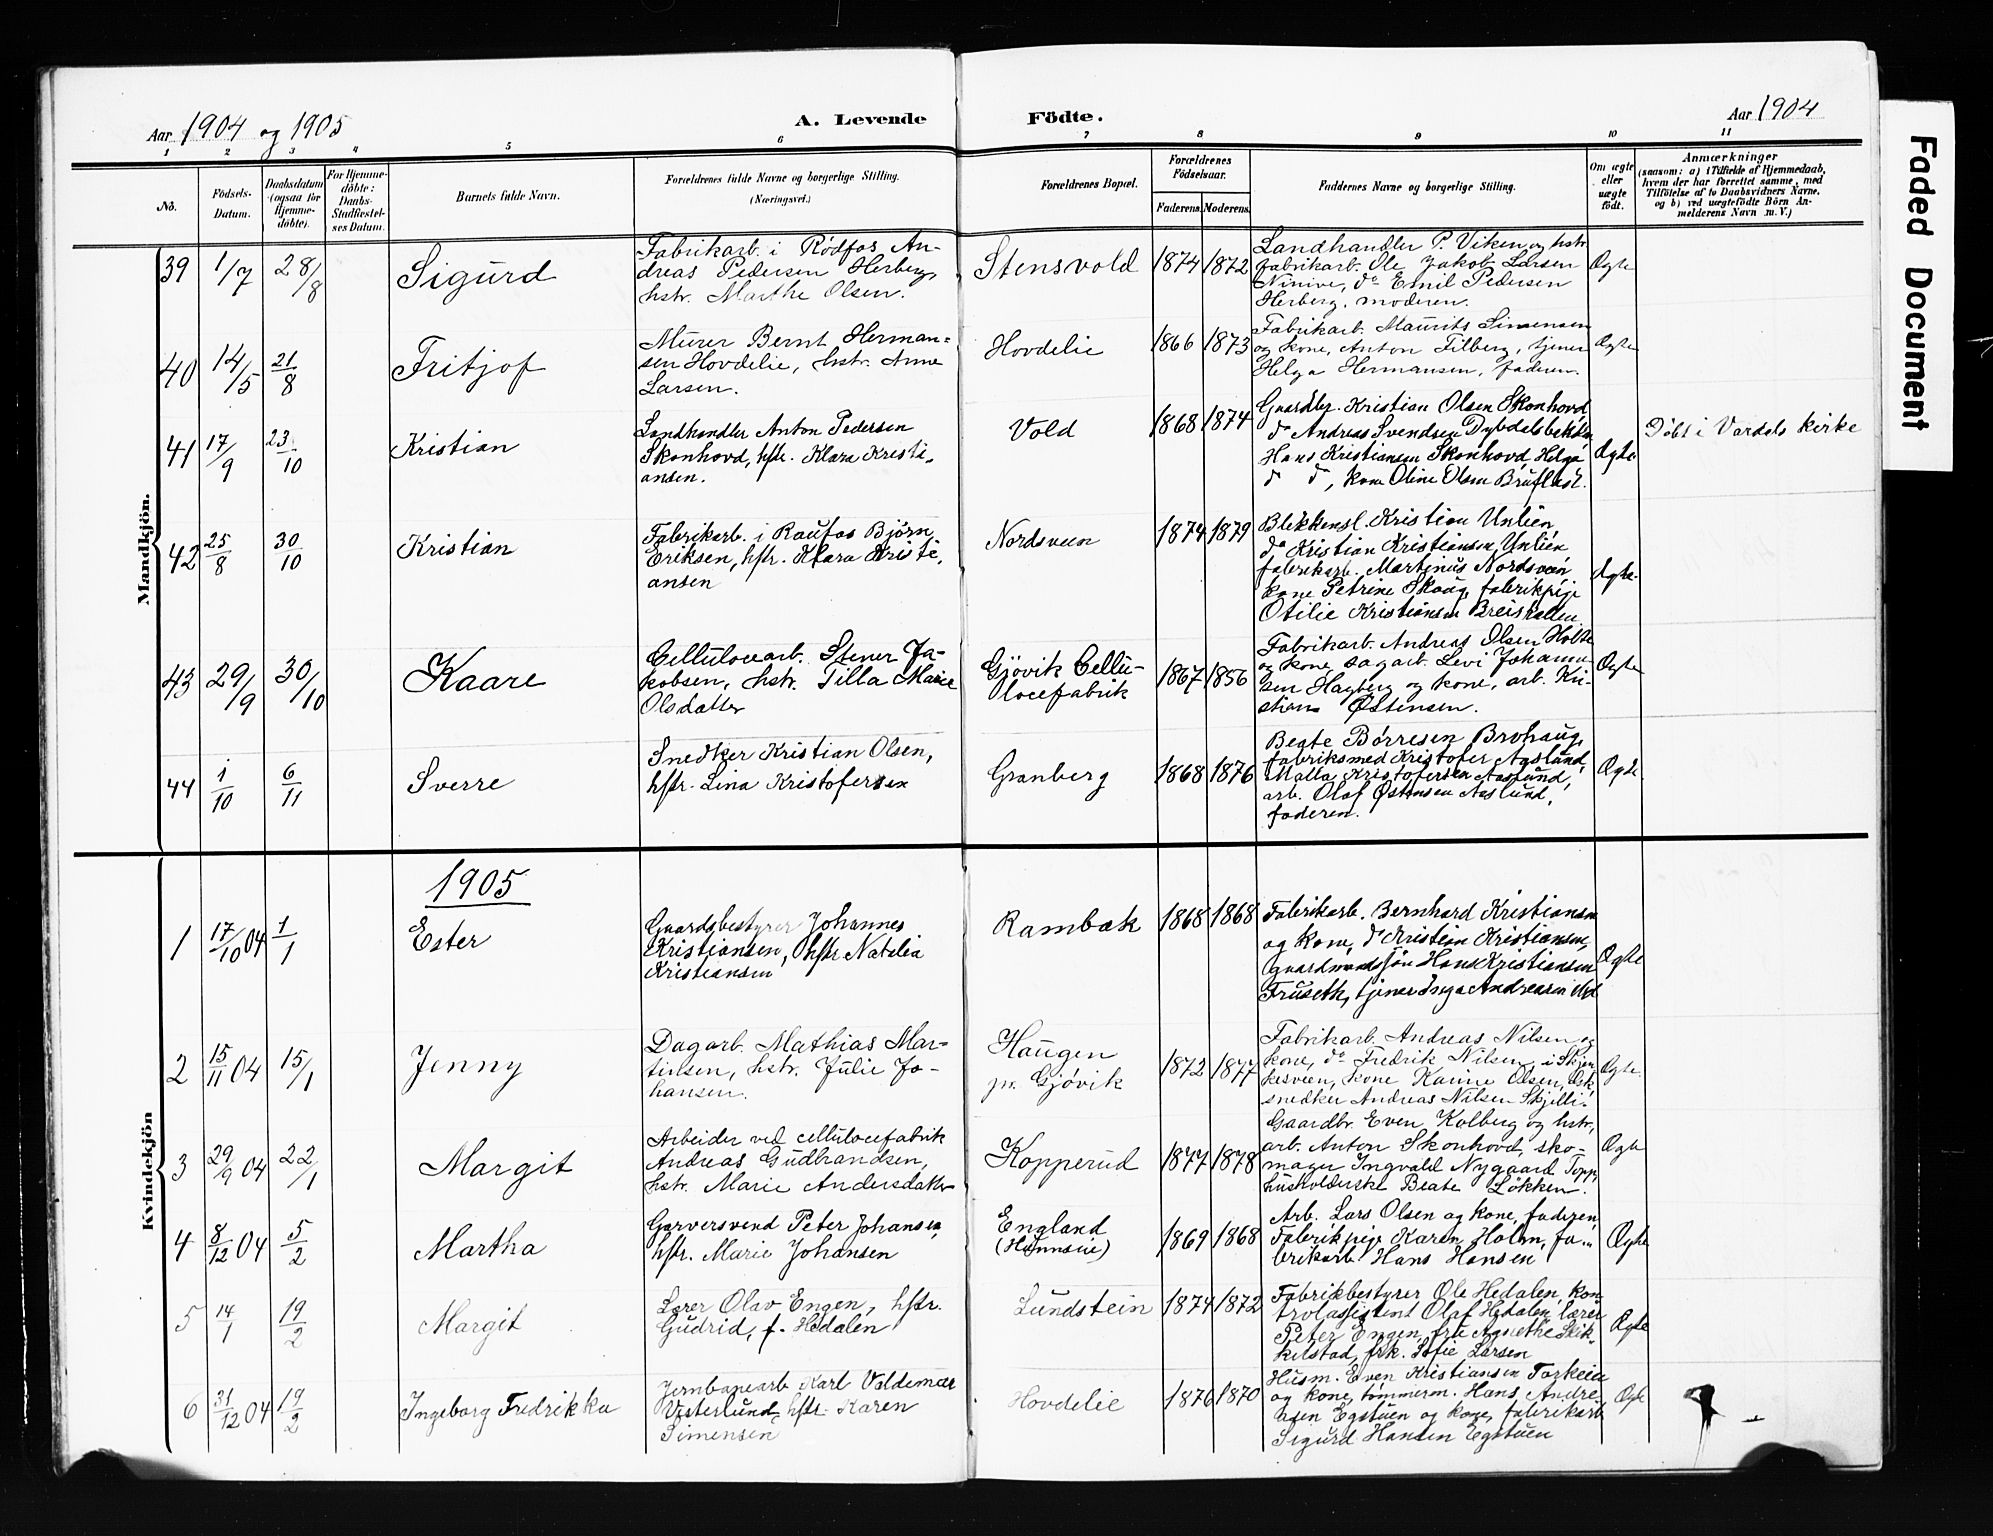 Aar 1904 og 1905
A. Levende Födte.
Aar 1904
1 2 3 4 5 6 7 8 9 10 11
No.
Födsels-Datum.
Daabsdatum (ogsaa for Hjemme-döbte).
For Hjemme-döbte: Daabs-Stadfæstel-ses Datum.
Barnets fulde Navn.
Forældrenes fulde Navne og borgerlige Stilling. (Næringsvei.)
Forældrenes Bopæl.
Forældrenes Födselsaar.
Faderens. Moderens.
Faddernes Navne og borgerlige Stilling.
Om ægte eller uægte födt.
Anmærkninger
(saasom: a) i Tilfælde af Hjemmedaab,
hvem der har forrettet samme, med
Tilföielse af to Daabsvidners Navne,
og b) ved uægtefödte Börn An-
melderens Navn m. V.)
Mandkjön.
39 1/7 28/8 Sigurd
Fabrikarb. i Rødfos An-
dreas Pedersen Herberg,
hstr. Marthe Olsen.
Stensvold 1874 1872
Landhandler P. Viken og hstr.
fabrikarb. Ole Jakob Larsen
Ninive, do Emil Pedersen
Herberg, moderen.
Ægte
40 14/5 21/8 Fritjof
Murer Bernt Herman=
sen Hovdelie, hstr. Anne
Larsen.
Hovdelie 1866 1873
Fabrikarb. Maurits Simensen
og kone, Anton Tilberg, tjener
Helga Hermansen, faderen.
Ægte
41 17/9 23/10 Kristian
Landhandler Anton Pedersen
Skonhovd, hstr. Klara Kristi-
ansen.
Vold 1868 1874
Gaardbr. Kristian Olsen Skonhovd
do Andreas Svendsen
Hans Kristiansen Skonhovd, Helga
do do, kone Oline Olsen Bruflat.
Ægte
Døbt i Vardals kirke
42 25/8 30/10 Kristian
Fabrikarb. i Raufos Bjørn
Eriksen, hstr. Klara Kristi-
ansen
Nordsveen 1874 1879
Blikkensl. Kristian Unlien,
do Kristian Kristiansen Unlien
fabrikarb. Martinus Nordsveen
kone Petrine Skaug, fabrikpige
Otilie Kristiansen
Ægte
43 29/9 30/10 Kaare
Cellulosearb. Stener Ja-
kobsen, hstr. Tilla Marie
Olsdatter
Gjövik Cellu-
locefabrik 1867 1856
Fabrikarb. Andreas Olsen Holte
og kone, sagarb. Levi Johanne-
sen Hagberg og kone, arb. Kri-
stian Østensen.
Ægte
44 1/10 6/11 Sverre
Snedker Kristian Olsen,
hstr. Lina Kristofersen
Granberg 1868 1876
Beate Børresen Brohaug,
fabriksmed Kristofer Aaslund,
Malla Kristofersen Aaslund,
arb. Olaf Østensen Aaslund,
faderen.
Ægte
Kvindekjön
1905
1 17/10 04 1/1 Ester
Gaardsbestyrer Johannes
Kristiansen, hstr Natalia
Kristiansen
Rambæk 1868 1868
Fabrikarb. Bernhard Kristiansen
og kone, do Kristian Kristiansen,
gaardmandssøn Hans Kristiansen
Fruseth, tjener Inga Andreasen
Ægte
2 15/11 04 15/1 Jenny
Dagarb. Mathias Mar-
tinsen, hstr. Julie Jo-
hansen.
Haugen
pr. Gjøvik 1872 1877
Fabrikarb. Andreas Nilsen og
kone, do Fredrik Nilsen, i Skjen
kesveen, kone Karine Olsen,
snedker Andreas Nilsen Skjelli.
Ægte
3 29/9 04 22/1 Margit
Arbeider ved cellulocefabrik
Andreas Gudbrandsen,
hstr. Marie Andersdatter
Kopperud 1877 1878
Gaardbr. Even Kolberg og hstr,
arb. Anton Skonhovd, sko-
mager Ingvald Nygaard Topp,
husholderske Beate Løkken.
Ægte
4 8/12 04 5/2 Martha
Garversvend Peter Johansen,
hstr. Marie Johansen
England
(Hunnslie) 1869 1868
Arb. Lars Olsen og kone, faderen,
Fabrikpige Karen Holm, fa-
brikarb Hans Hansen
Ægte
5 14/1 19/2 Margit
Lærer Olav Engen, hstr.
Gudrid, f. Hedalen
Lundstein 1874 1872
Fabrikbestyrer Ole Hedalen, kon-
trolassistent Olaf Hedalen, lærer
Peter Engen, fru Agnethe Skik-
kelstad, frk. Sofie Larsen
Ægte
6 31/12 04 19/2 Ingeborg Fredrikka
Jernbanearb Karl Valdemar
Vesterlund, hstr Karen
Simensen
Hovdelie 1876 1870
Husm. Even Kristiansen
og kone, tømmerm. Hans Andre-
asen Egstuen og kone, fabrikarb
Sigurd Hansen Egstuen
Ægte
Faded Document